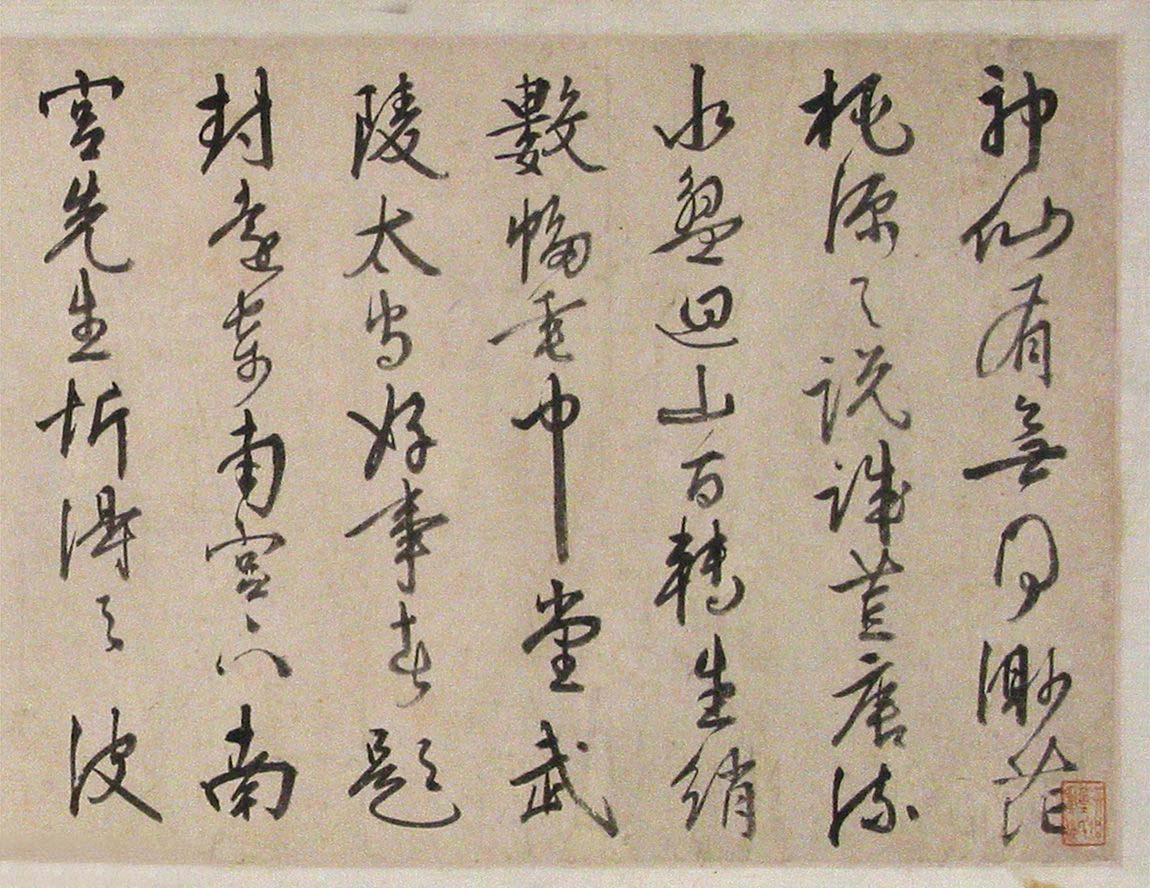 神仙有無何渺茫
桃源之說誠荒唐流
水盤迴山百轉生綃
數幅垂中堂武
陵太守好事者題
封遠寄南宮下南
宮先生忻得之波